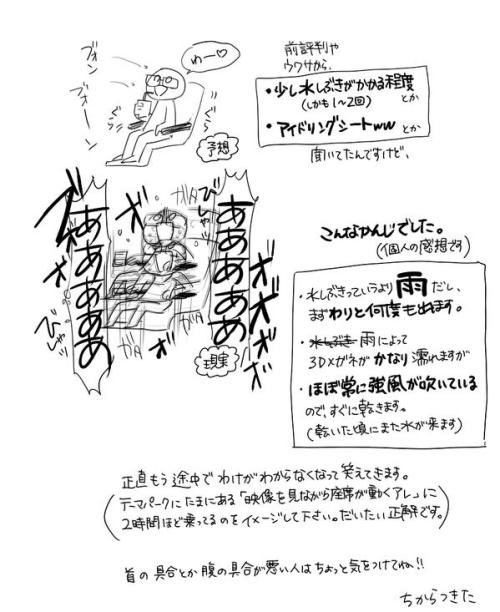 前評判や
ウワサから、
・少し水しぶきがかかる程度
(しかも1〜2回) とか
・アイドリングシートww とか
聞いてたんですけど、
ブォン
ブォーン
わー♡
ぐらぐら
予想
こんなかんじでした。
(個人の感想です)
ああああああ
ああああああ
びしゃっ
ガタ
ガタ
ガタ
ぶぉ
ぶぉ
ぶぉおおお
びしゃっ
現実
・水しぶきっていうより雨だし、
まずわりと何度も出ます。
・水しぶき 雨によって
3Dメガネがかなり濡れますが
・ほぼ常に強風が吹いている
ので、すぐに乾きます。
(乾いた頃にまた水が来ます)
正直もう途中でわけがわからなくなって笑えてきます。
(テーマパークにたまにある「映像を見ながら座席が動くアレ」に
2時間ほど乗ってるのをイメージして下さい。だいたい正解です。)
首の具合とか腹の具合が悪い人はちょっと気をつけてね!!
ちからつきた